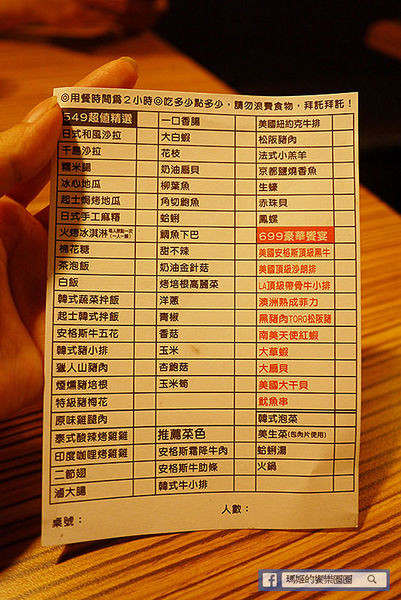 ◎用餐時間為2小時◎吃多少點多少，請勿浪費食物，拜託拜託！
549超值精選
日式和風沙拉
千島沙拉
糯米腸
冰心地瓜
起士焗烤地瓜
日式手工麻糬
火烤冰淇淋
棉花糖
茶泡飯
白飯
韓式蔬菜拌飯
起士韓式拌飯
安格斯牛五花
韓式豬小排
獵人山豬肉
煙燻豬培根
特級豬梅花
原味雞腿肉
泰式酸辣烤雞雞
印度咖哩烤雞雞
二節翅
滷大腸
一口香腸
大白蝦
花枝
奶油扇貝
柳葉魚
角切鮑魚
蛤蜊
鯛魚下巴
甜不辣
奶油金針菇
烤培根高麗菜
洋蔥
青椒
香菇
玉米
杏鮑菇
玉米筍
推薦菜色
安格斯霜降牛肉
安格斯牛肋條
韓式牛小排
美國紐約克牛排
松阪豬肉
法式小羔羊
京都鹽燒香魚
生蠔
赤珠貝
鳳螺
699豪華饗宴
美國安格斯頂級黑牛
美國頂級沙朗排
LA頂級帶骨牛小排
澳洲熟成菲力
黑豬肉TORO松阪豬
南美天使紅蝦
大草蝦
大扇貝
美國大干貝
魷魚串
韓式泡菜
美生菜(包肉片使用)
蛤蜊湯
火鍋
桌號：
人數：
瑪姬的饗樂圈圈